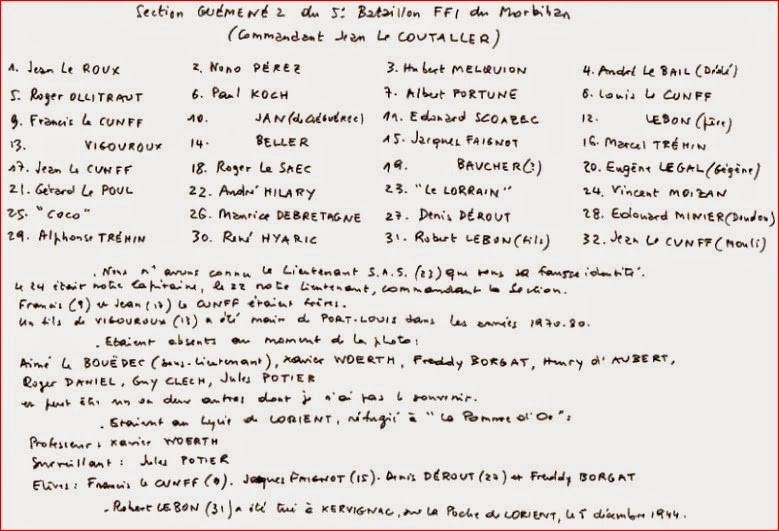 Section GUÉMENÉ 2 du 5e Bataillon FFI du Morbihan
(Commandant Jean Le COUTALLER)
1. Jean Le ROUX 2. Nono PÉREZ 3. Hubert MELQUION 4. André LE BAIL (Dédé)
5. Roger OLLITRAUT 6. Paul KOCH 7. Albert PORTUNE 8. Louis Le CUNFF
9. Francis Le CUNFF 10. JAN (de CLÉGUÉREC) 11. Edouard SCOAZEC 12. LEBON (père)
13. VIGOUROUX 14. BELLER 15. Jacques FAIGNOT 16. Marcel TRÉHIN
17. Jean Le CUNFF 18. Roger Le SAEC 19. BAUCHER (?) 20. Eugène LEGAL (Gégène)
21. Gérard Le POUL 22. André HILARY 23. "Le LORRAIN" 24. Vincent MOIZAN
25. "COCO" 26. Maurice DEBRETAGNE 27. Denis DÉROUT 28. Edouard MINIER (Doudou)
29. Alphonse TRÉHIN 30. René HYARIC 31. Robert LEBON (fils) 32. Jean Le CUNFF (Mouli)
. Nous n'avons connu le Lieutenant S.A.S. (23) que sous sa fausse identité.
Le 24 était notre Capitaine, le 22 notre Lieutenant, commandant la Section.
Francis (9) et Jean (17) Le CUNFF étaient frères.
Un fils de VIGOUROUX (13) a été maire de PORT-LOUIS dans les années 1970-80.
. Etaient absents au moment de la photo :
Aimé Le BOUËDEC (sous-Lieutenant), Xavier WOERTH, Freddy BORGAT, Henry d'AUBERT,
Roger DANIEL, Guy CLECH, Jules POTIER
et peut être un ou deux autres dont je n'ai pas le souvenir.
. Etaient au Lycée de LORIENT, réfugié à "La Pomme d'Or" :
Professeur : Xavier WOERTH
Surveillant : Jules POTIER
Elèves : Francis Le CUNFF (9). Jacques FAIGNOT (15). Denis DÉROUT (27) et Freddy BORGAT
. Robert LEBON (31) a été tué à KERVIGNAC, sur la Poche de LORIENT, le 5 décembre 1944.